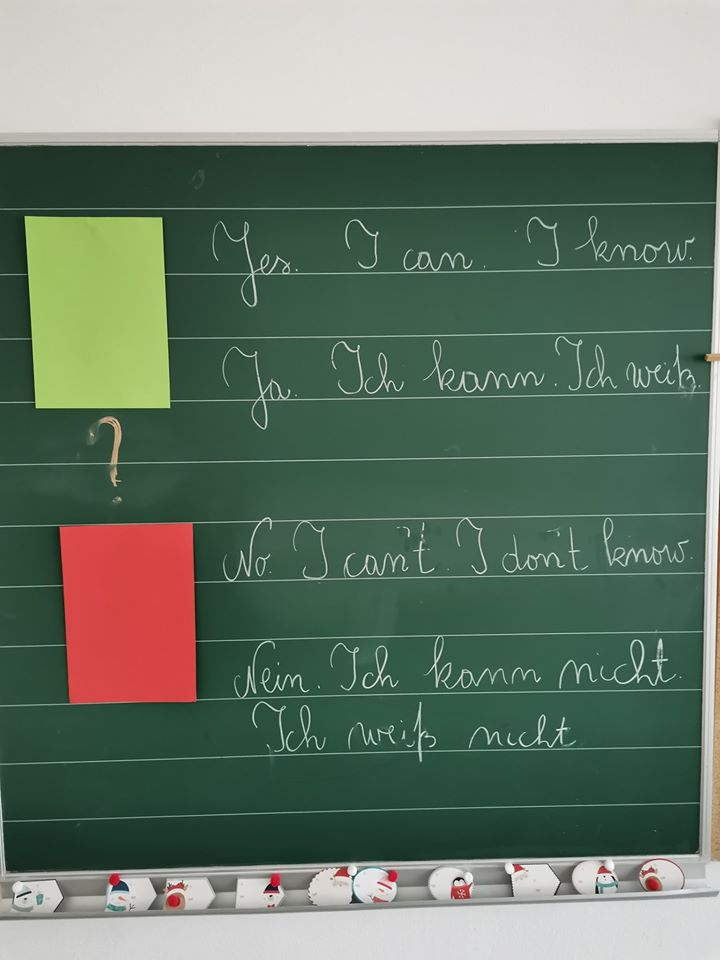 Yes. I can. I know.
Ja. Ich kann. Ich weiß.
?
No. I can't. I don't know.
Nein. Ich kann nicht.
Ich weiß nicht